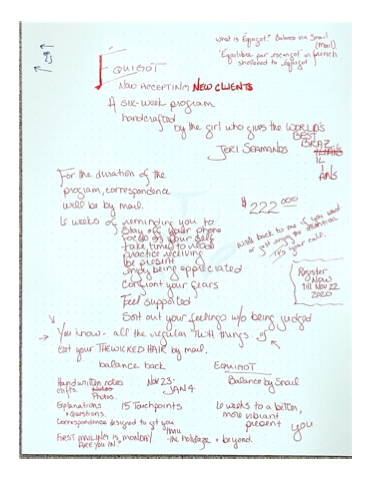 What is Equigot? Balance via Snail
(Mail)
"Equilibre par escargot" in french
shortened to equigot
EQUIGOT
NOW ACCEPTING NEW CLIENTS
A six-week program
handcrafted
by the girl who gives the WORLD'S
BEST
BRAZ
IL
IANS
JERI SEAMANDS
For the duration of the
program, correspondence
will be by mail.
$222.00
6 weeks of reminding you to
stay off your phone
focus on your self
take time to read
practice receiving
be present
enjoy being appreciated
Confront your fears
Feel supported
Sort out your feelings w/o being judged
Write back to me if you want
or just enjoy the attention.
It's your call.
Register
Now
till Nov 22
2020
You know - all the regular "TWH things"
Get your THEWICKED HAIR by mail.
balance back
EQUIGOT
Handwritten notes
Nov 23 -
JAN 4
Balance by Snail
Gifts. Notes
Photos.
Explanations
+ questions.
15 Touchpoints
6 weeks to a better,
more vibrant
present you.
Correspondence designed to get you
thru
FIRST MAILING IS MONDAY
the holidaze + beyond.
ARE YOU IN?